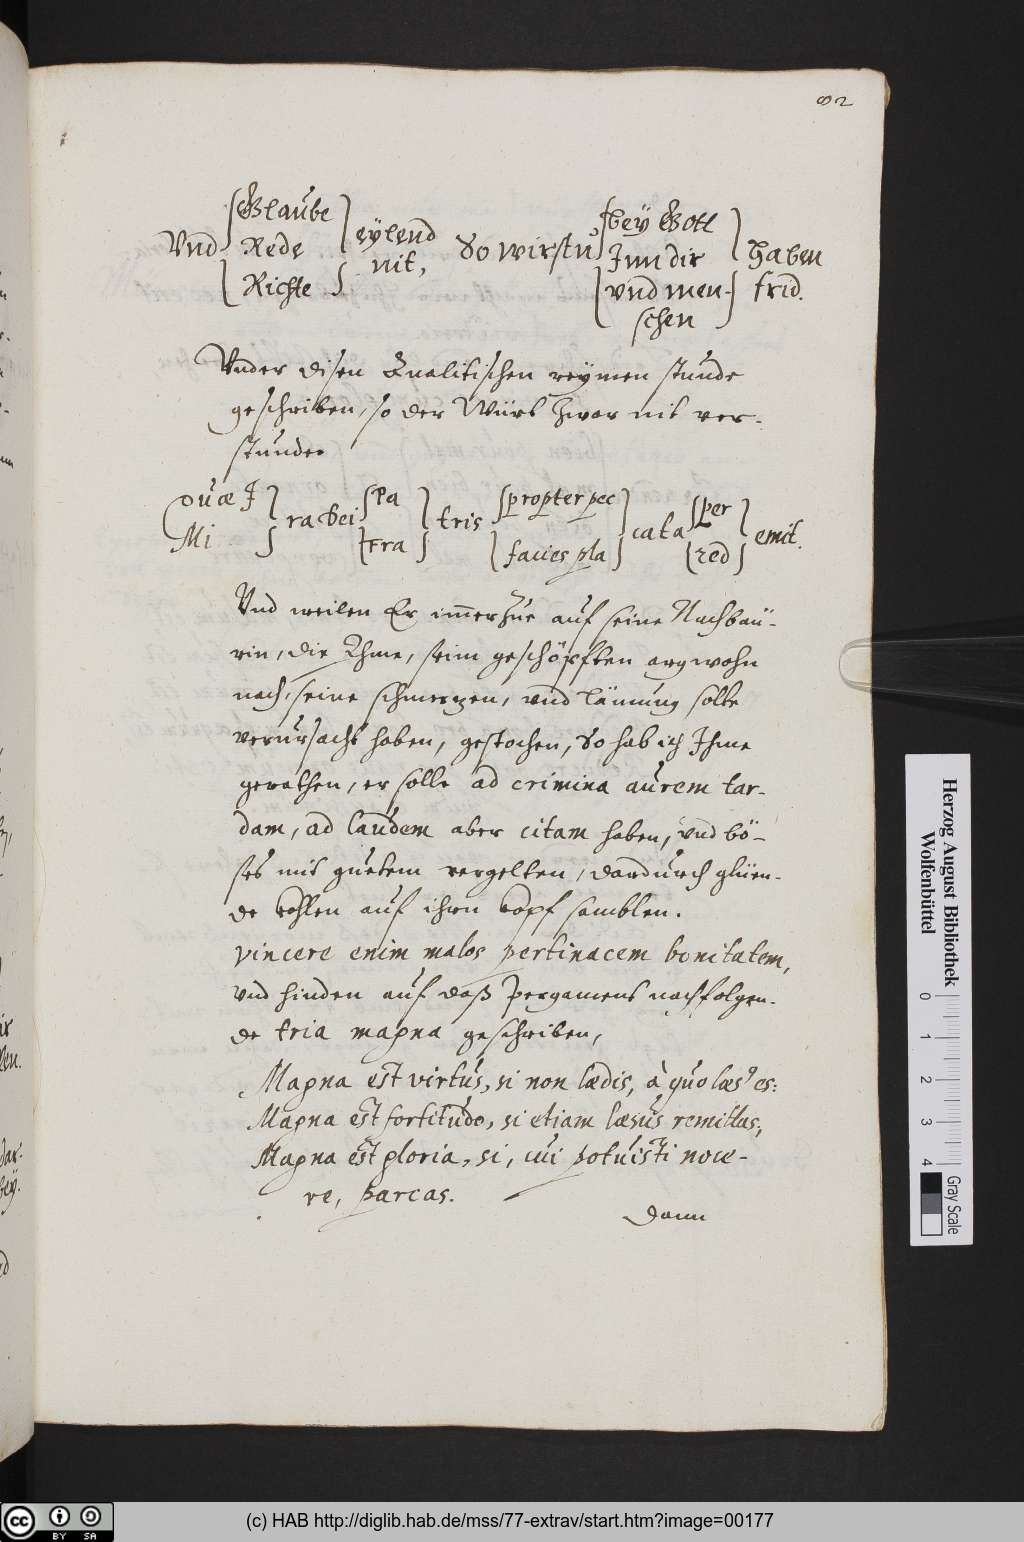 82
Glaube
Vnd Rede eylend So wirstu bey Gott Jnn dir haben
Richte nit, vnd men- frid.
schen
Vnder disen Qualitischen reymen stunde
geschriben, so der Würt zwar nit ver-
stunde.
Quæ J ra Dei Pa tris propter pec cata per emit.
Mi Fra facies pla red
Vnd weilen Er im̅erzue auf seine Nachbaü-
rin, die Jhme, seim geschöpften argwohn
nach, seine schmerzen, vnd lämung solte
verursacht haben, gestochen, So hab ich Jhme
gerathen, er solle ad crimina aurem tar-
dam, ad laudem aber citam haben, vnd bö-
ses mit guetem vergelten, dardurch glüen-
de kohlen auf ihrn kopf samblen.
vincere enim malos pertinacem bonitatem,
vnd hinden auf daß Pergament nachfolgen-
de tria magna geschriben,
Magna est virtus, si non lædis, à quo læsꝰ es:
Magna est fortitudo, si etiam læsus remittas;
Magna est gloria, si, cui potuisti noce-
re, parcas.
Dann
Herzog August Bibliothek
Wolfenbüttel
0 1 2 3 4
Gray Scale
cc BY SA
(c) HAB http://diglib.hab.de/mss/77-extrav/start.htm?image=00177